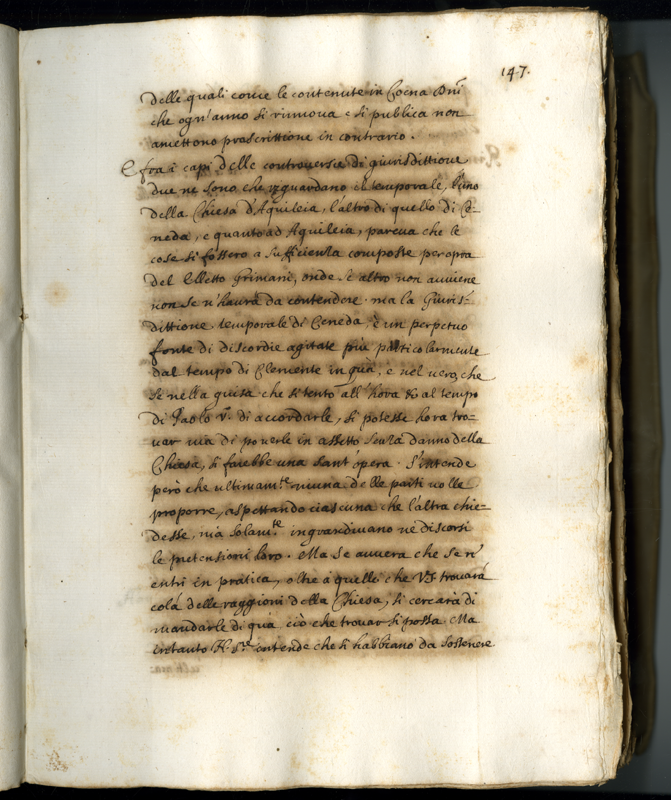 147.
delle quali come le contenute in Coena Dñi
che ogn'anno si rinnova e si publica non
amettono proscrittione in contrario.
E fra i capi delle controversie di giurisdittione
due ne sono che risguardano il temporale, l'uno
della Chiesa d'Aquileia, l'altro di quello di Ce-
neda, e quanto ad Aquileia, pareva che le
cose si fossero a sufficienza composte per opra
del Eletto Grimani, onde se altro non avviene
non se n'haurà da contendere. ma la Giuris-
dittione temporale di Ceneda, è un perpetuo
fonte di discordie agitate più particolarmente
dal tempo di Clemente in quà, e nel vero, che
se nella guisa che si tentò all'hora al tempo
di Paolo V. di accordarle, si potesse hora tro-
uar via di ponerle in assetto senza danno della
Chiesa, si farebbe una sant'opera. S'intende
però che ultimam.te niuna delle parti volle
proporre, aspettando ciascuna che l'altra chie-
desse, ma solam.te ingrandivano ne discorsi
le pretensioni loro. Ma se avverrà che se n'
entri in pratica, oltre à quelle che V.S. trovarà
colà delle raggioni della Chiesa, si cercarà di
mandarle di quà, ciò che trovar si possa. Ma
intanto N. S.re intende che si habbiano da sostenere